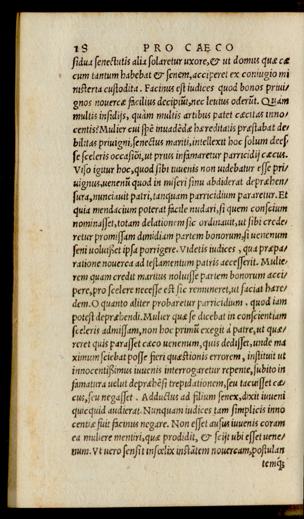 18 PRO CAECO
sidua senectutis alia solaretur uxore, & ut domus quæ cæ
cum tantum habebat & senem, acciperet ex coniugio mi
nisteria custodita. Facinus est iudices quod bonos priui-
gnos nouercæ facilius decipiūt, nec leuius oderūt. Quam
multis insidijs, quàm multis artibus patet cæcitas inno-
centis? Mulier cui spē inuadēdæ hæreditatis præstabat de-
bilitas priuigni, senectus mariti, intellexit hoc solum dees-
se sceleris occasiōi, ut prius infamaretur parricidij cæcus.
Viso igitur hoc, quod sibi iuuenis non uidebatur esse pri-
uignus, uenenū quod in miseri sinu abdiderat depræhen-
sura, nunciauit patri, tanquam parricidium pararetur. Et
quia mendacium poterat facile nudari, si quem conscium
nominasset, totam delationem sic ordinauit, ut sibi crede-
retur promissam dimidiam partem bonorum, si uenenum
seni uoluisset ipsa porrigere. Videtis iudices, qua præpa-
ratione nouerca ad testamentum patris accesserit. Mulie-
rem quam credit maritus noluisse partem bonorum acci-
pere, pro scelere necesse est sic remuneret, ut faciat hære-
dem. O quanto aliter probaretur parricidium, quod iam
potest depræhendi. Mulier quæ se dicebat in conscientiam
sceleris admissam, non hoc primū exegit à patre, ut quæ-
reret quis parasset cæco uenenum, quis dedisset, unde ma
ximum sciebat posse fieri quæstionis errorem, instituit ut
innocentissimus iuuenis interrogaretur repente, subito in
famatura uelut depræhēsi trepidationem, seu tacuisset cæ-
cus, seu negasset. Adductus ad filium senex, dixit iuueni
quicquid audierat. Nunquam iudices tam simplicis inno
centiæ fuit facinus negare. Non esset ausus iuuenis coram
ea muliere mentiri, quæ prodidit, & scijt ubi esset uene/
num. Vt uero sensit infœlix instātem nouercam, postulan
temq́;